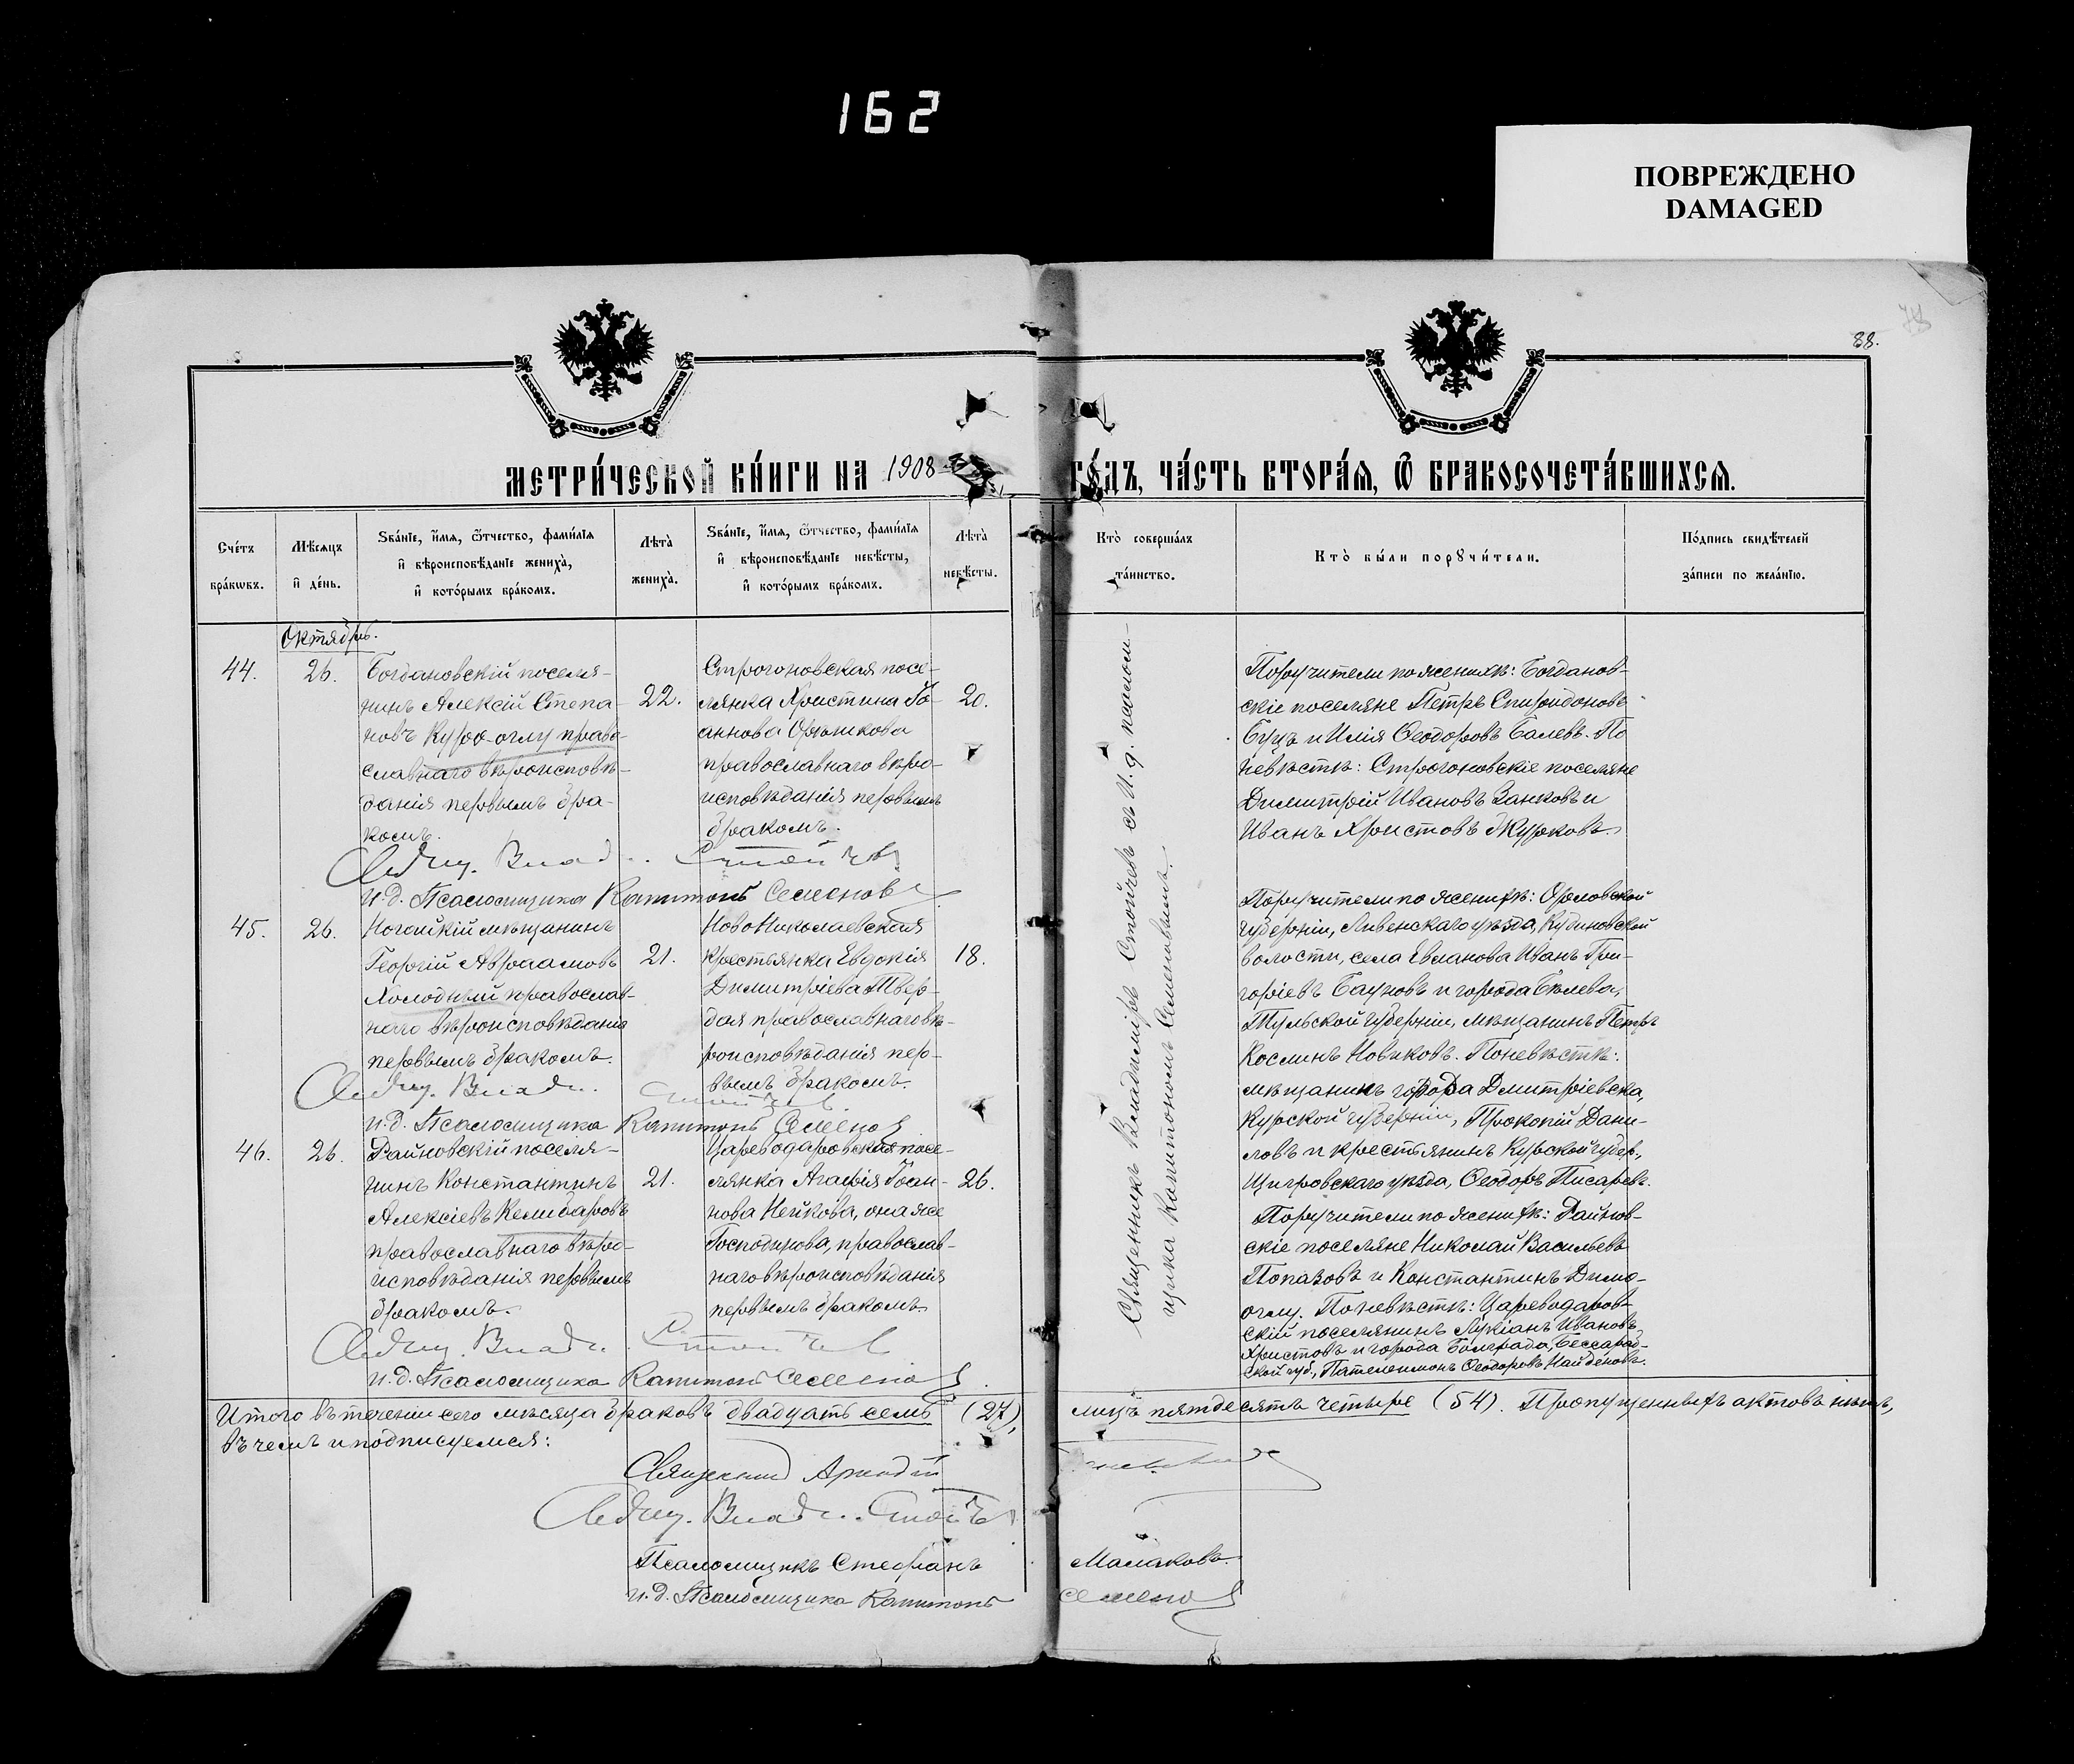 162
ПОВРЕЖДЕНО
DAMAGED
88.
МЕТРИ́ЧЕСКОЙ КНИ́ГИ НА 1908 ГО́ДЪ, ЧА́СТЬ ВТОРА́Я, Ѿ БРАКОСОЧЕТА́ВШИХСЯ.
Сче́тъ
бра́кѡвъ.
Мѣ́сяцъ
и҆ де́нь.
Зва́нїе, и҆́мя, ѻ҆́тчество, фами́лїя
и҆ вѣроисповѣ́данїе жениха̀,
и҆ кото́рымъ бра́комъ.
Лѣта̀
жениха̀.
Зва́нїе, и҆́мя, ѻ҆́тчество, фами́лїя
и҆ вѣроисповѣ́данїе невѣ́сты,
и҆ кото́рымъ бра́комъ.
Лѣта̀
невѣ́сты.
Кто̀ соверша́лъ
та́инство.
Кто̀ бы́ли порꙋчи́тели.
По́дпись свидѣ́телей
за́писи по жела́нїю.
Октябрь.
44.
26.
Богдановскій поселя-
нинъ Алексій Степа-
новъ Курдо-оглу право-
славнаго вѣроисповѣ-
данія первымъ бра-
комъ.
22.
Строгоновская посе-
лянка Христина Іо-
аннова Орѣшкова
православнаго вѣро-
исповѣданія первымъ
бракомъ.
20.
Священникъ Владиміръ Стойчевъ съ И. д. псалом-
щика Капитономъ Семеновымъ.
Поручители по женихѣ: Богданов-
скіе поселяне Петръ Спиридоновъ
Буцъ и Илія Ѳеодоровъ Балевъ. По
невѣстѣ: Строгоновскіе поселяне
Димитрій Ивановъ Занковъ и
Иванъ Христовъ Журковъ.
Свящ. Влад. Стойчев
И.д. Псаломщика Капитонъ Семенов
45.
26.
Ногайскій мѣщанинъ
Георгій Авраамовъ
Холодный православ-
наго вѣроисповѣданія
первымъ бракомъ.
21.
НовоНиколаевская
крестьянка Евдокія
Димитріева Твер-
дая православнаго вѣ-
роисповѣданія пер-
вымъ бракомъ.
18.
Поручители по женихѣ: Орловской
губерніи, Ливенскаго уѣзда, Кудиновской
волости, села Евланова Иванъ Гри-
горіевъ Бауновъ и города Бѣлева,
Тульской губерніи, мѣщанинъ Петръ
Косминъ Новиковъ. По невѣстѣ:
мѣщанинъ города Дмитріевска,
Курской губерніи, Прокопій Дани-
ловъ и крестьянинъ Курской губер.,
Щигровскаго уѣзда, Ѳеодоръ Писаревъ.
Свящ. Влад. Стойчев
И.д. Псаломщика Капитонъ Семенов
46.
26.
Райновскій поселя-
нинъ Константинъ
Алексіевъ Келибаровъ
православнаго вѣро-
исповѣданія первымъ
бракомъ.
21.
Цареводаровская посе-
лянка Агафія Іоан-
нова Нейкова, она же
Господинова, православ-
наго вѣроисповѣданія
первымъ бракомъ.
26.
Поручители по женихѣ: Райнов-
скіе поселяне Николай Васильевъ
Попазовъ и Константинъ Димо-
оглу. По невѣстѣ: Цареводаров-
скій поселянинъ Лукіанъ Ивановъ
Христовъ и города Болграда, Бессараб-
ской губ., Пателеимонъ Ѳеодоровъ Найденовъ.
Свящ. Влад. Стойчев
И.д. Псаломщика Капитонъ Семенов
Итого въ теченіи сего мѣсяца браковъ двадцать семь (27), лицъ пятьдесятъ четыре (54). Пропущенныхъ актовъ нѣтъ,
въ чемъ и подписуемся:
Священник Аркадій
Свящ. Влад. Стойчев
Псаломщикъ Стефанъ Малаковъ.
И.д. Псаломщика Капитонъ Семенов